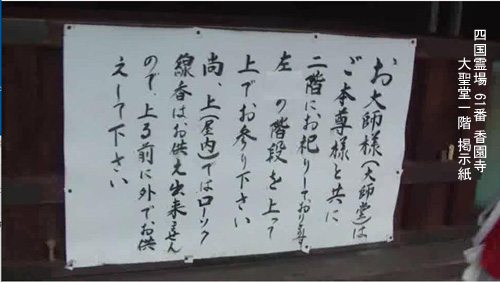 四国霊場 61番 香園寺
大聖堂一階 掲示紙
お大師様(大師堂)は
ご本尊様と共に
二階にお祀りしております
左の階段を上って
上でお参り下さい
尚、上(屋内)ではローソク
線香はお供え出来ません
ので、上る前に外でお供
えして下さい